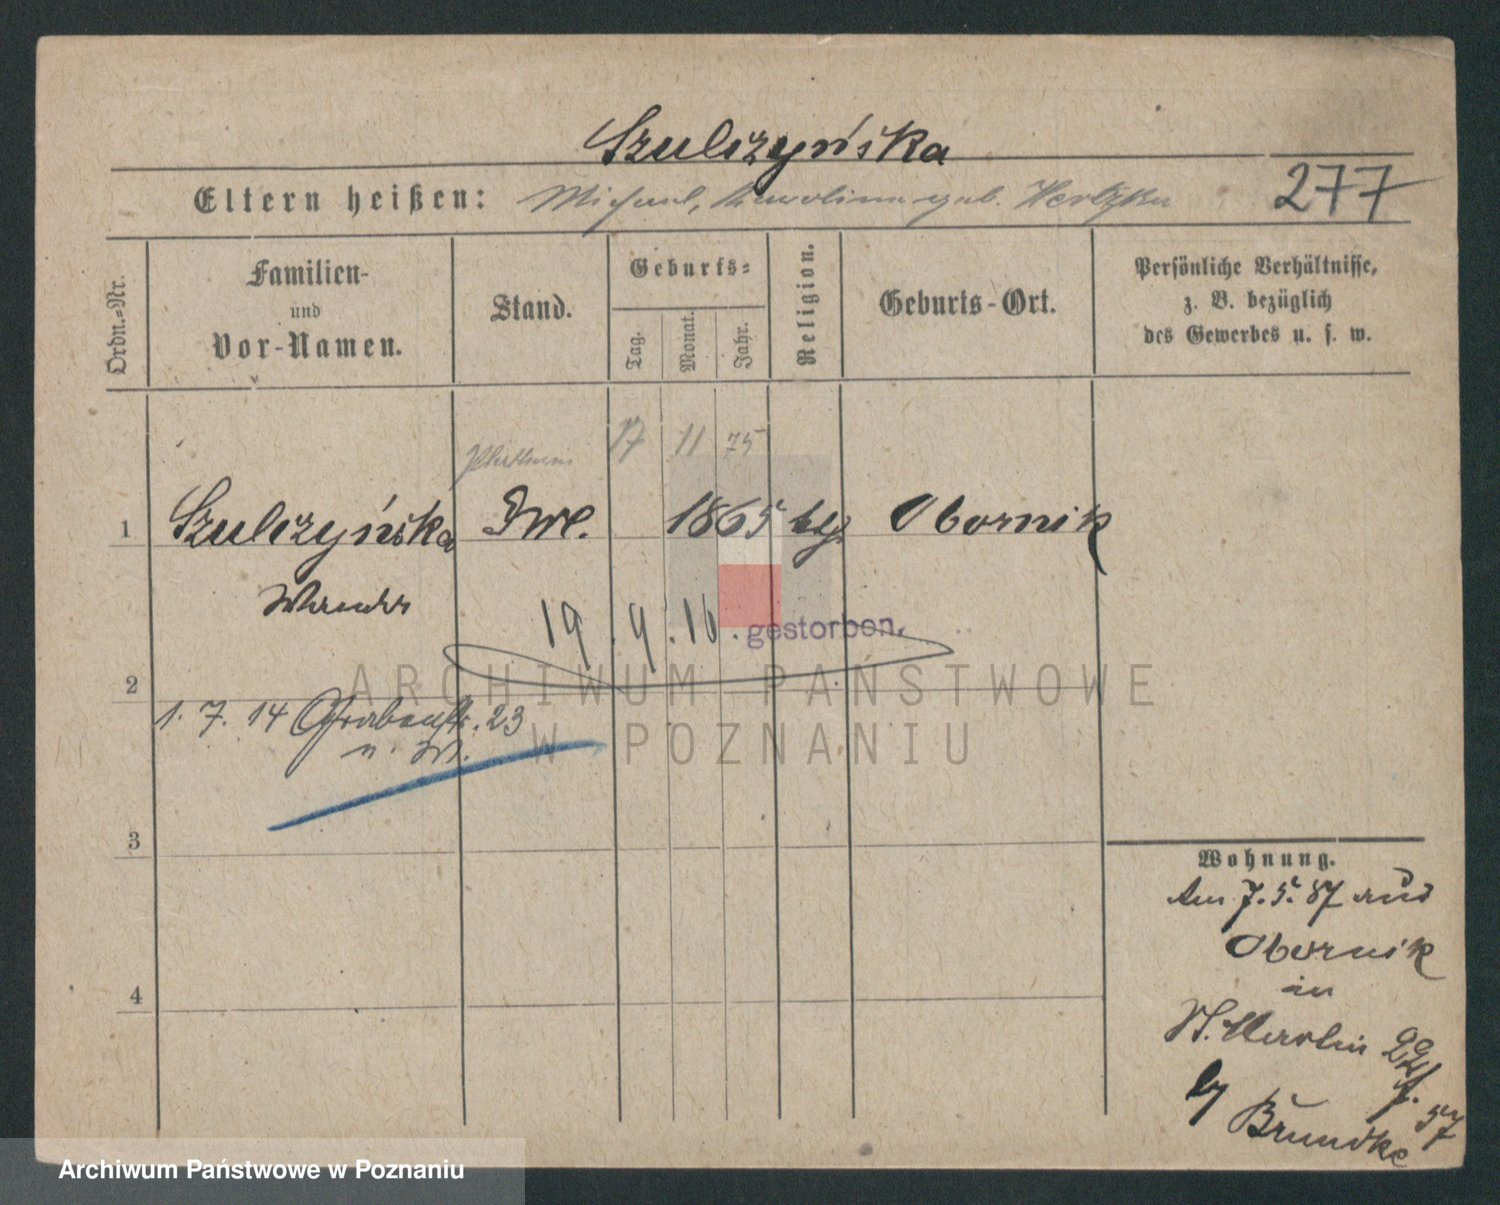 Szulczyńska
Eltern heißen: Michael, Karolina geb. 277
Ordn.-Nr.
Familien-
und
Vor-Namen.
Stand.
Geburts-
Tag. Monat. Jahr.
Religion.
Geburts-Ort.
Persönliche Verhältnisse,
z. B. bezüglich
des Gewerbes u. s. w.
17 11 75
1 Szulczyńska 1865 Obornik
Wanda
19.9.16. gestorben.
2
1. 7. 14 Grabenstr. 23
ARCHIWUM PAŃSTWOWE
W POZNANIU
3
Wohnung.
Am 7. 5. 87 aus
Obornik
in
St. Martin 22/
f. 57
by Brundke
4
Archiwum Państwowe w Poznaniu